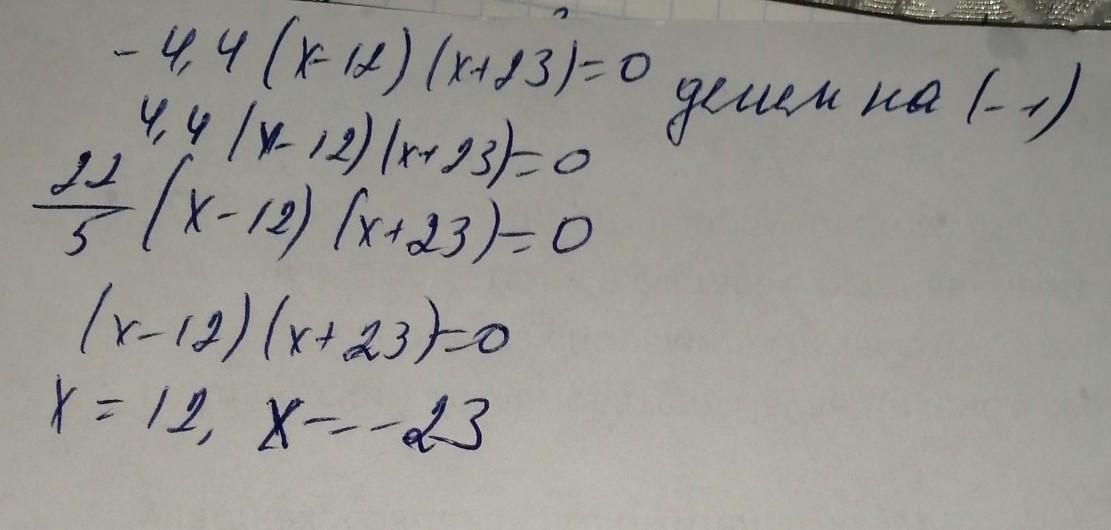 -4,4 (x-12) (x+23)=0 делем на (-1)
4,4 (x-12) (x+23)=0
22/5 (x-12) (x+23)=0
(x-12) (x+23)=0
x = 12, x=-23